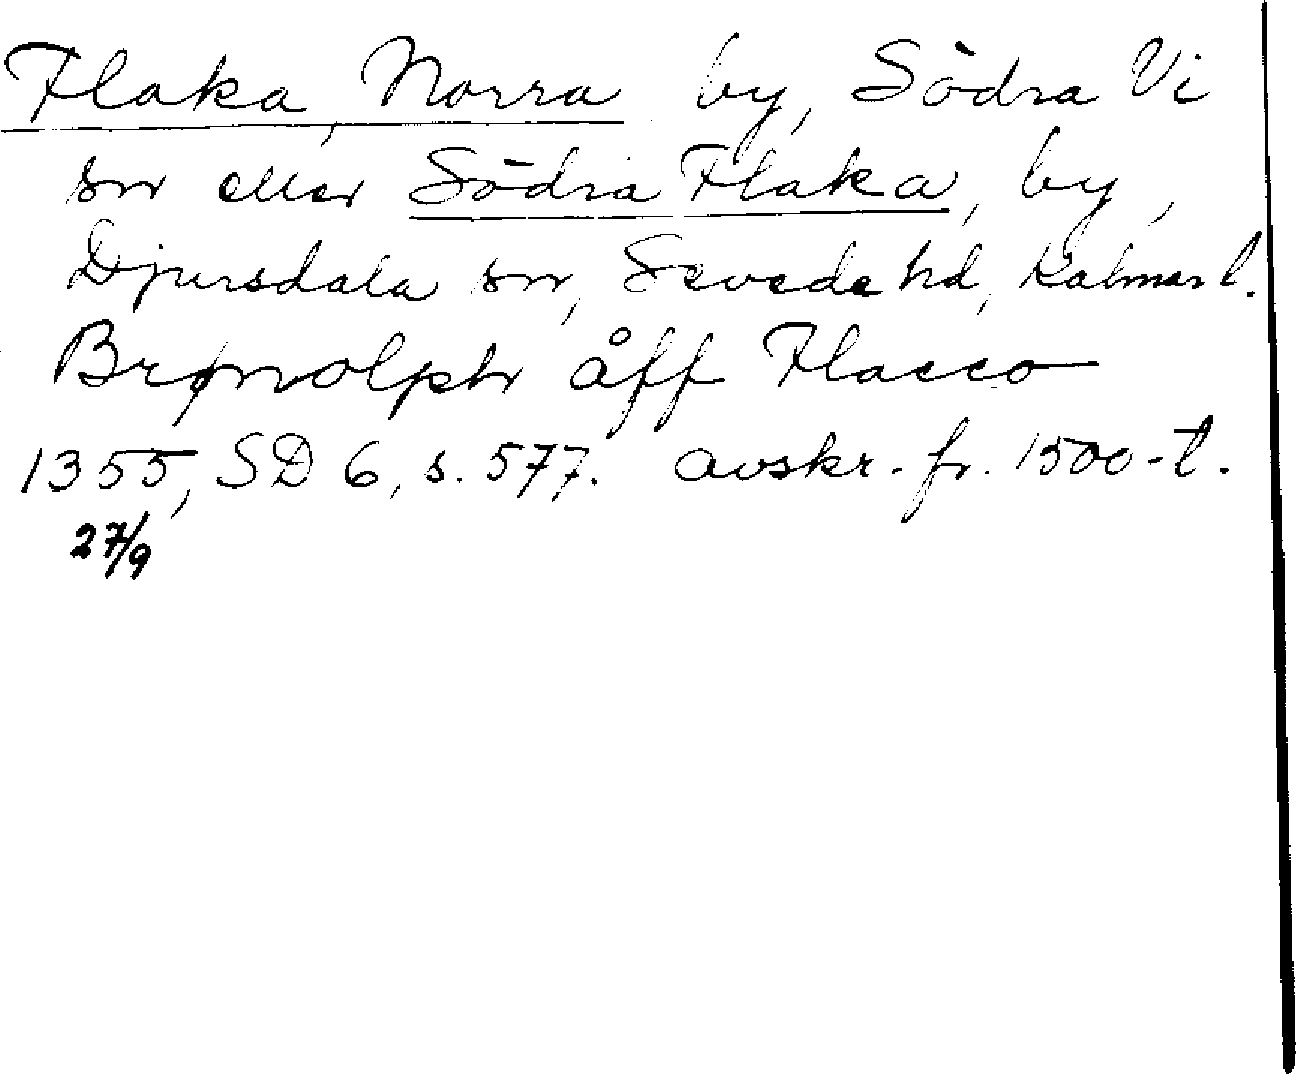 Flaka, Norra by, Södra Vi
sn eller Södra Flaka, by,
Djursdala sn, Sevede hd, Kalmar l.
Brynolphr åff Flacco
1355, SD 6, s. 577. avskr. fr. 1500-t.
27/9